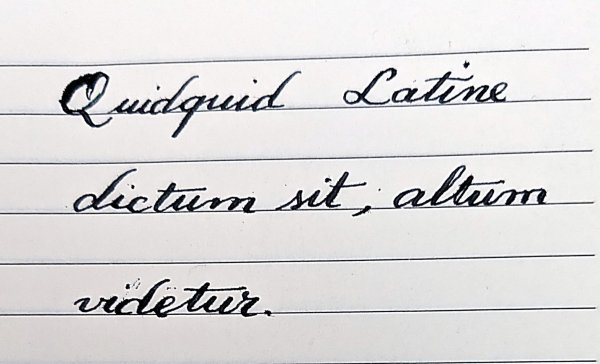 Quidquid Latine
dictum sit, altum
videtur.